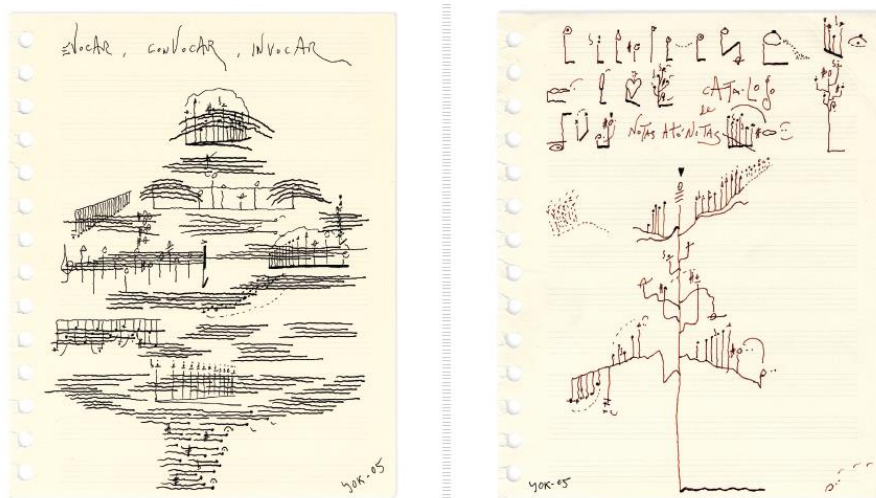 EVOCAR, CONVOCAR, INVOCAR
YOK-05
CATA-LOGO
de
NOTAS ATÓ NOTAS
YOK-05